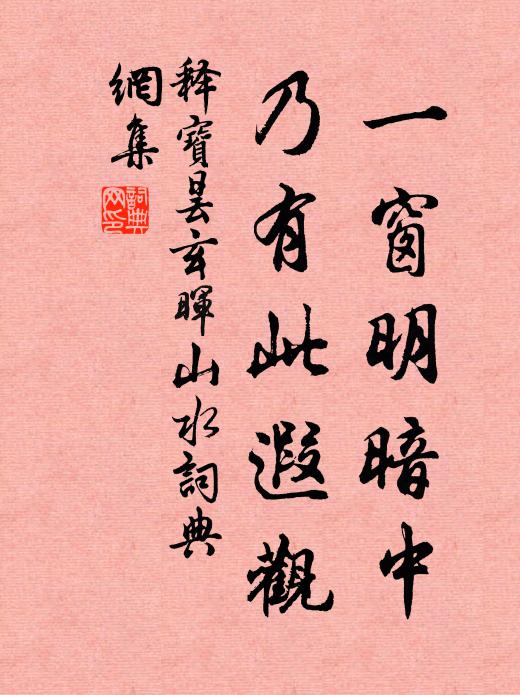 一窗明暗中
乃有此遐觀
释寶昙玄暉山水詞典
網集
詞典網印